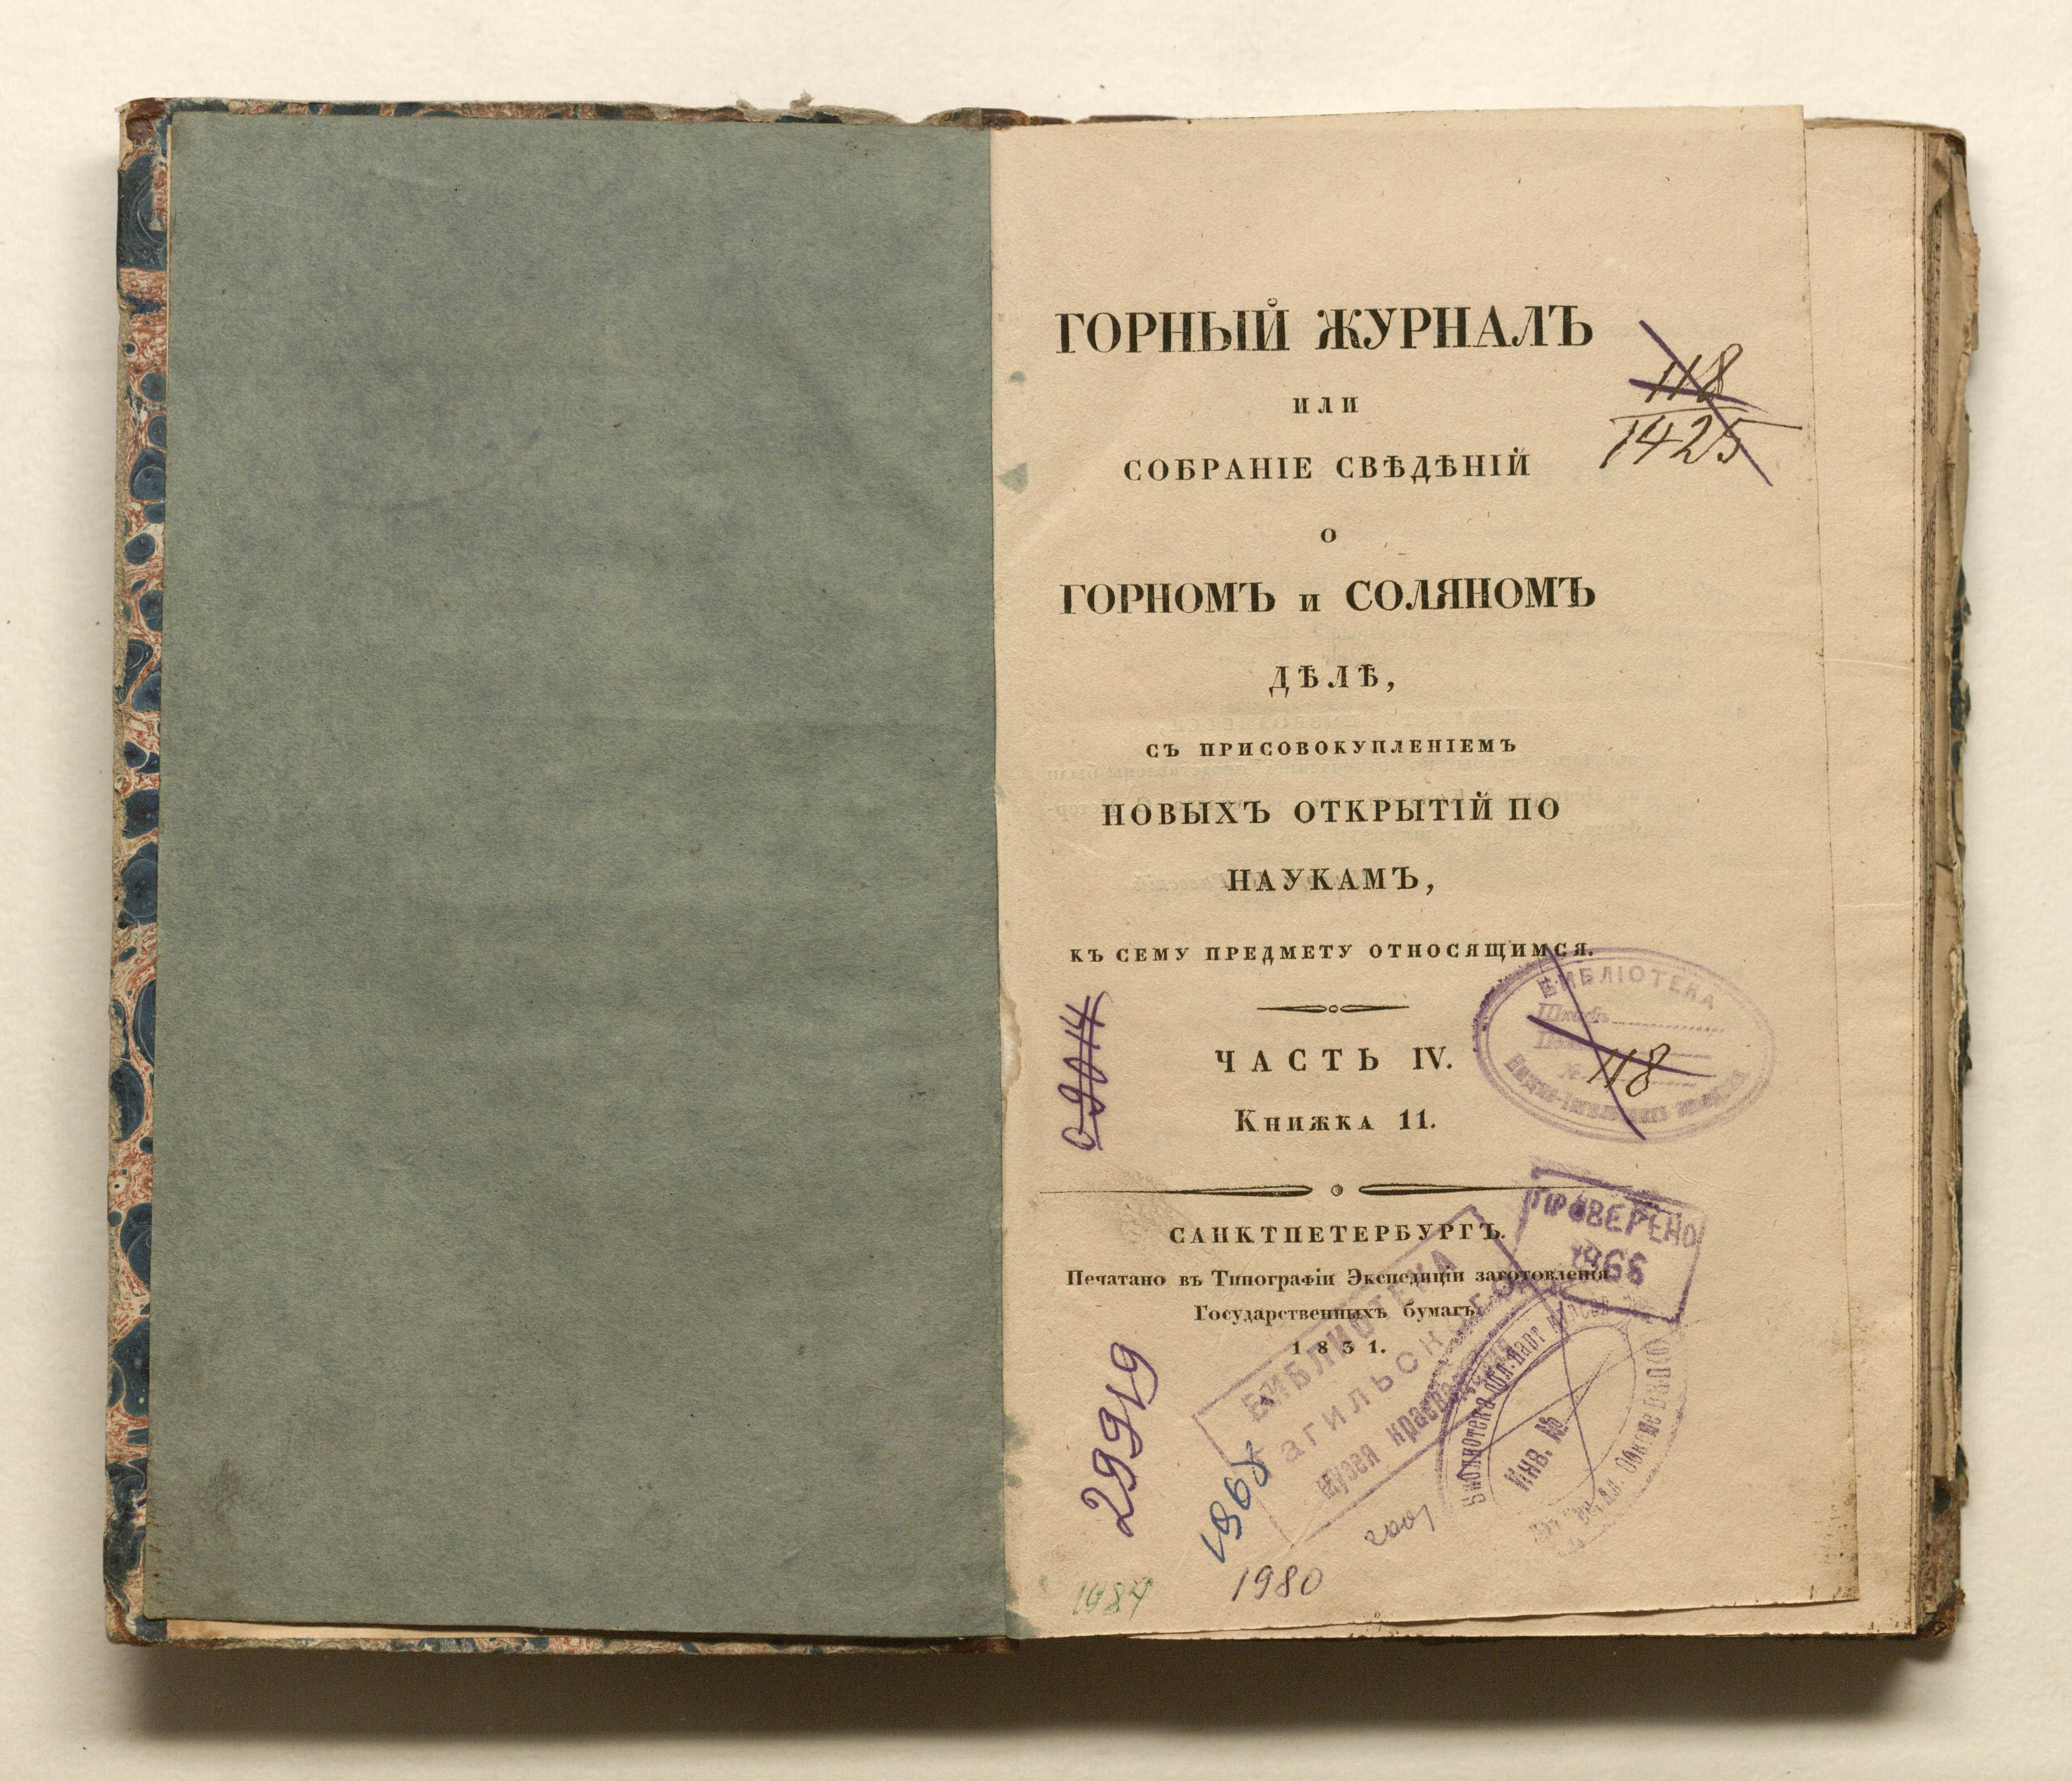 ГОРНЫЙ ЖУРНАЛЪ
ИЛИ
СОБРАНІЕ СВѢДѢНІЙ
О
ГОРНОМЪ и СОЛЯНОМЪ
ДѢЛѢ,
СЪ ПРИСОВОКУПЛЕНІЕМЪ
НОВЫХЪ ОТКРЫТІЙ ПО
НАУКАМЪ,
КЪ СЕМУ ПРЕДМЕТУ ОТНОСЯЩИМСЯ.
ЧАСТЬ IV.
Книжка 11.
САНКТПЕТЕРБУРГЪ.
Печатано въ Типографіи Экспедиціи заготовленія
Государственныхъ бумагъ.
1831.
118
1425
БИБЛІОТЕКА
Шкафъ
№ 118
09014
ПРОВЕРЕНО
1966
БИБЛИОТЕКА
музея краеведения
Библиотека
Инв. №
29919
1968
2001
1980
1984